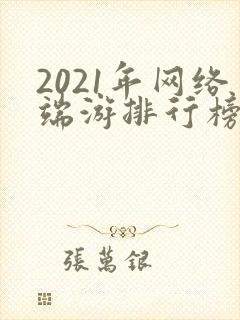 2021年网络
端游排行榜
張萬銀